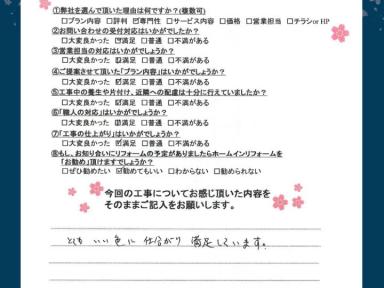 ①弊社を選んで頂いた理由は何ですか?(複数可)
□プラン内容 □評判 ☑専門性 □サービス内容 □価格 □営業担当 □チラシor HP
②お問い合わせの受付対応はいかがでしたか?
□大変良かった ☑満足 □普通 □不満がある
③営業担当の対応はいかがでしょうか?
□大変良かった ☑満足 □普通 □不満がある
④ご提案させて頂いた「プラン内容」はいかがでしょうか?
□大変良かった ☑満足 □普通 □不満がある
⑤工事中の養生や片付け、近隣への配慮は十分に行えていましたか?
□大変良かった ☑満足 □普通 □不満がある
⑥「職人の対応」はいかがでしょうか?
□大変良かった ☑満足 □普通 □不満がある
⑦「工事の仕上がり」はいかがでしょうか?
□大変良かった ☑満足 □普通 □不満がある
⑧もし、お知り合いにリフォームの予定がありましたらホームインリフォームを
「お勧め」頂けますでしょうか?
□ぜひ勧めたい ☑勧めてもいい □わからない □勧められない
今回の工事についてお感じ頂いた内容を
そのままご記入をお願いします。
とてもいい色に仕上がり満足しています。